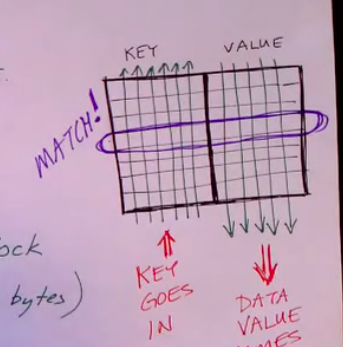 KEY
VALUE
MATCH!
ock
bytes)
KEY
GOES
IN
DATA
VALUE